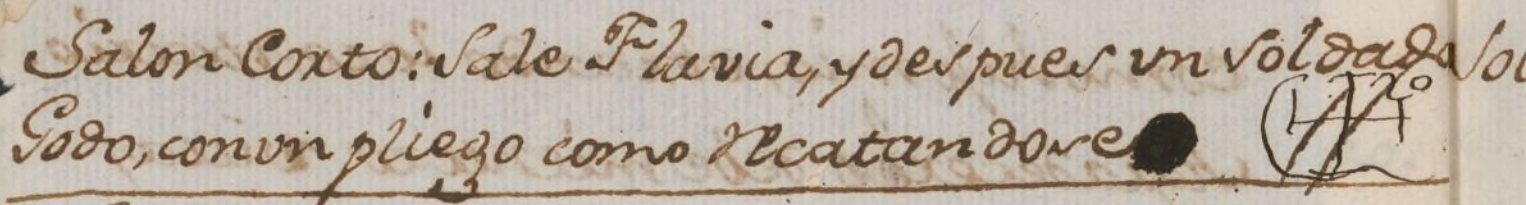 Salon Corto: Sale Flavia, y despues vn soldado
Godo, con vn pliego como Recatandose